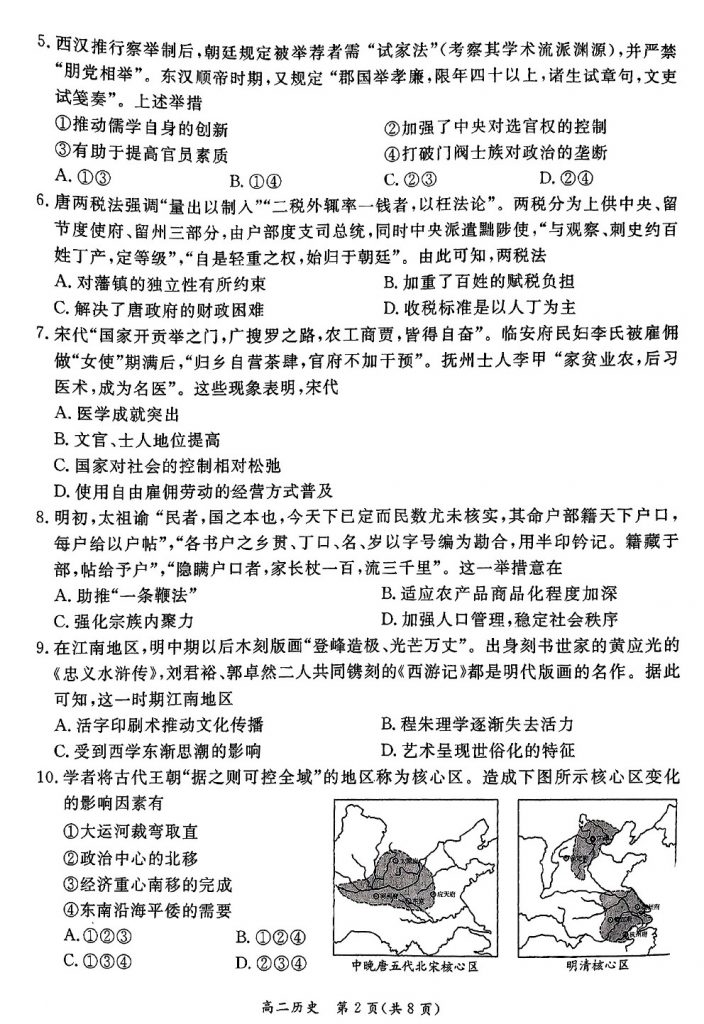 5. 西汉推行察举制后,朝廷规定被举荐者需“试家法”(考察其学术流派渊源),并严禁
“朋党相举”。东汉顺帝时期,又规定“郡国举孝廉,限年四十以上,诸生试章句,文吏
试笺奏”。上述举措
①推动儒学自身的创新 ②加强了中央对选官权的控制
③有助于提高官员素质 ④打破门阀士族对政治的垄断
A. ①③ B. ①④ C. ②③ D. ②④
6. 唐两税法强调“量出以制入”“二税外辄率一钱者,以枉法论”。两税分为上供中央、留
节度使府、留州三部分,由户部度支司总统,同时中央派遣黜陟使,“与观察、刺史约百
姓丁产,定等级”,“自是轻重之权,始归于朝廷”。由此可知,两税法
A. 对藩镇的独立性有所约束 B. 加重了百姓的赋税负担
C. 解决了唐政府的财政困难 D. 收税标准是以人丁为主
7. 宋代“国家开贡举之门,广搜罗之路,农工商贾,皆得自奋”。临安府民妇李氏被雇佣
做“女使”期满后,“归乡自营茶肆,官府不加干预”。抚州士人李甲“家贫业农,后习
医术,成为名医”。这些现象表明,宋代
A. 医学成就突出
B. 文官、士人地位提高
C. 国家对社会的控制相对松弛
D. 使用自由雇佣劳动的经营方式普及
8. 明初,太祖谕“民者,国之本也,今天下已定而民数尤未核实,其命户部籍天下户口,
每户给以户帖”,“各书户之乡贯、丁口、名、岁以字号编为勘合,用半印钤记。籍藏于
部,帖给予户”,“隐瞒户口者,家长杖一百,流三千里”。这一举措意在
A. 助推“一条鞭法” B. 适应农产品商品化程度加深
C. 强化宗族内聚力 D. 加强人口管理,稳定社会秩序
9. 在江南地区,明中期以后木刻版画“登峰造极、光芒万丈”。出身刻书世家的黄应光的
《忠义水浒传》,刘君裕、郭卓然二人共同镌刻的《西游记》都是明代版画的名作。据此
可知,这一时期江南地区
A. 活字印刷术推动文化传播 B. 程朱理学逐渐失去活力
C. 受到西学东渐思潮的影响 D. 艺术呈现世俗化的特征
10. 学者将古代王朝“据之则可控全域”的地区称为核心区。造成下图所示核心区变化
的影响因素有
①大运河裁弯取直
②政治中心的北移
③经济重心南移的完成
④东南沿海平倭的需要
A. ①②③ B. ①②④
C. ①③④ D. ②③④
应天府
中晚唐五代北宋核心区 明清核心区
高二历史 第 2 页(共 8 页)